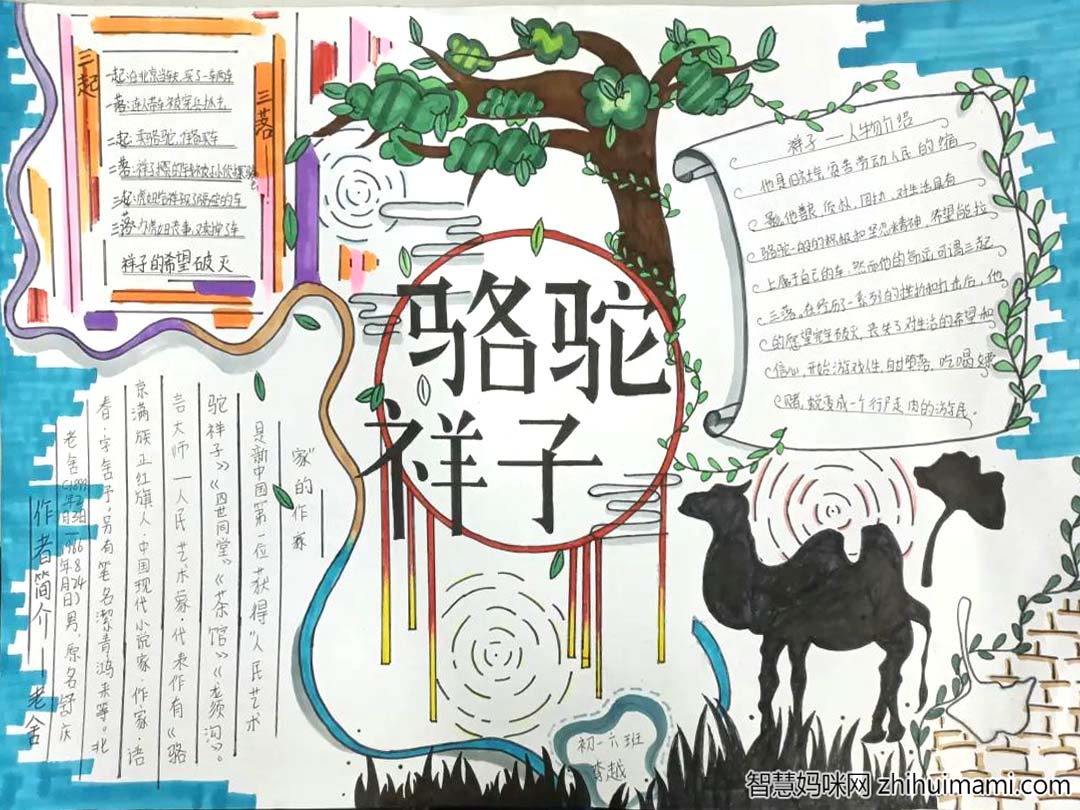 三起
三落
一起:在北京当车夫,买了一车两车
一落:连人带车被宪兵抓去
二起:卖骆驼,准备买车
二落:
三起:虎妞给祥子
三落:为虎妞丧事,又卖掉了车
祥子的希望破灭
骆驼
祥子
祥子——人物介绍
他是旧社会贫苦劳动人民的缩
影,他勤劳,对生活具有
骆驼一般的积极和坚忍精神,希望能拉
上属于自己的车,然而他的命运可谓三起
三落,在经历了一系列的挫折和打击后,他
的愿望完全破灭,丧失了对生活的希望和
信心,开始游戏人生,自甘堕落,吃喝嫖
赌,蜕变成一个行尸走肉的游民。
作者简介——老舍
老舍(1899年2月3日—1966年8月24日)男,原名舒庆
春,字舍予,另有笔名絜青鸿来等。北
京满族正红旗人。中国现代小说家·作家·语
言大师——人民艺术家·代表作有《骆
驼祥子》《四世同堂》《茶馆》《龙须沟》。
是新中国第一位获得“人民艺术
家”的作家
初一六班
李越
智慧妈咪网 zhihuimami.com